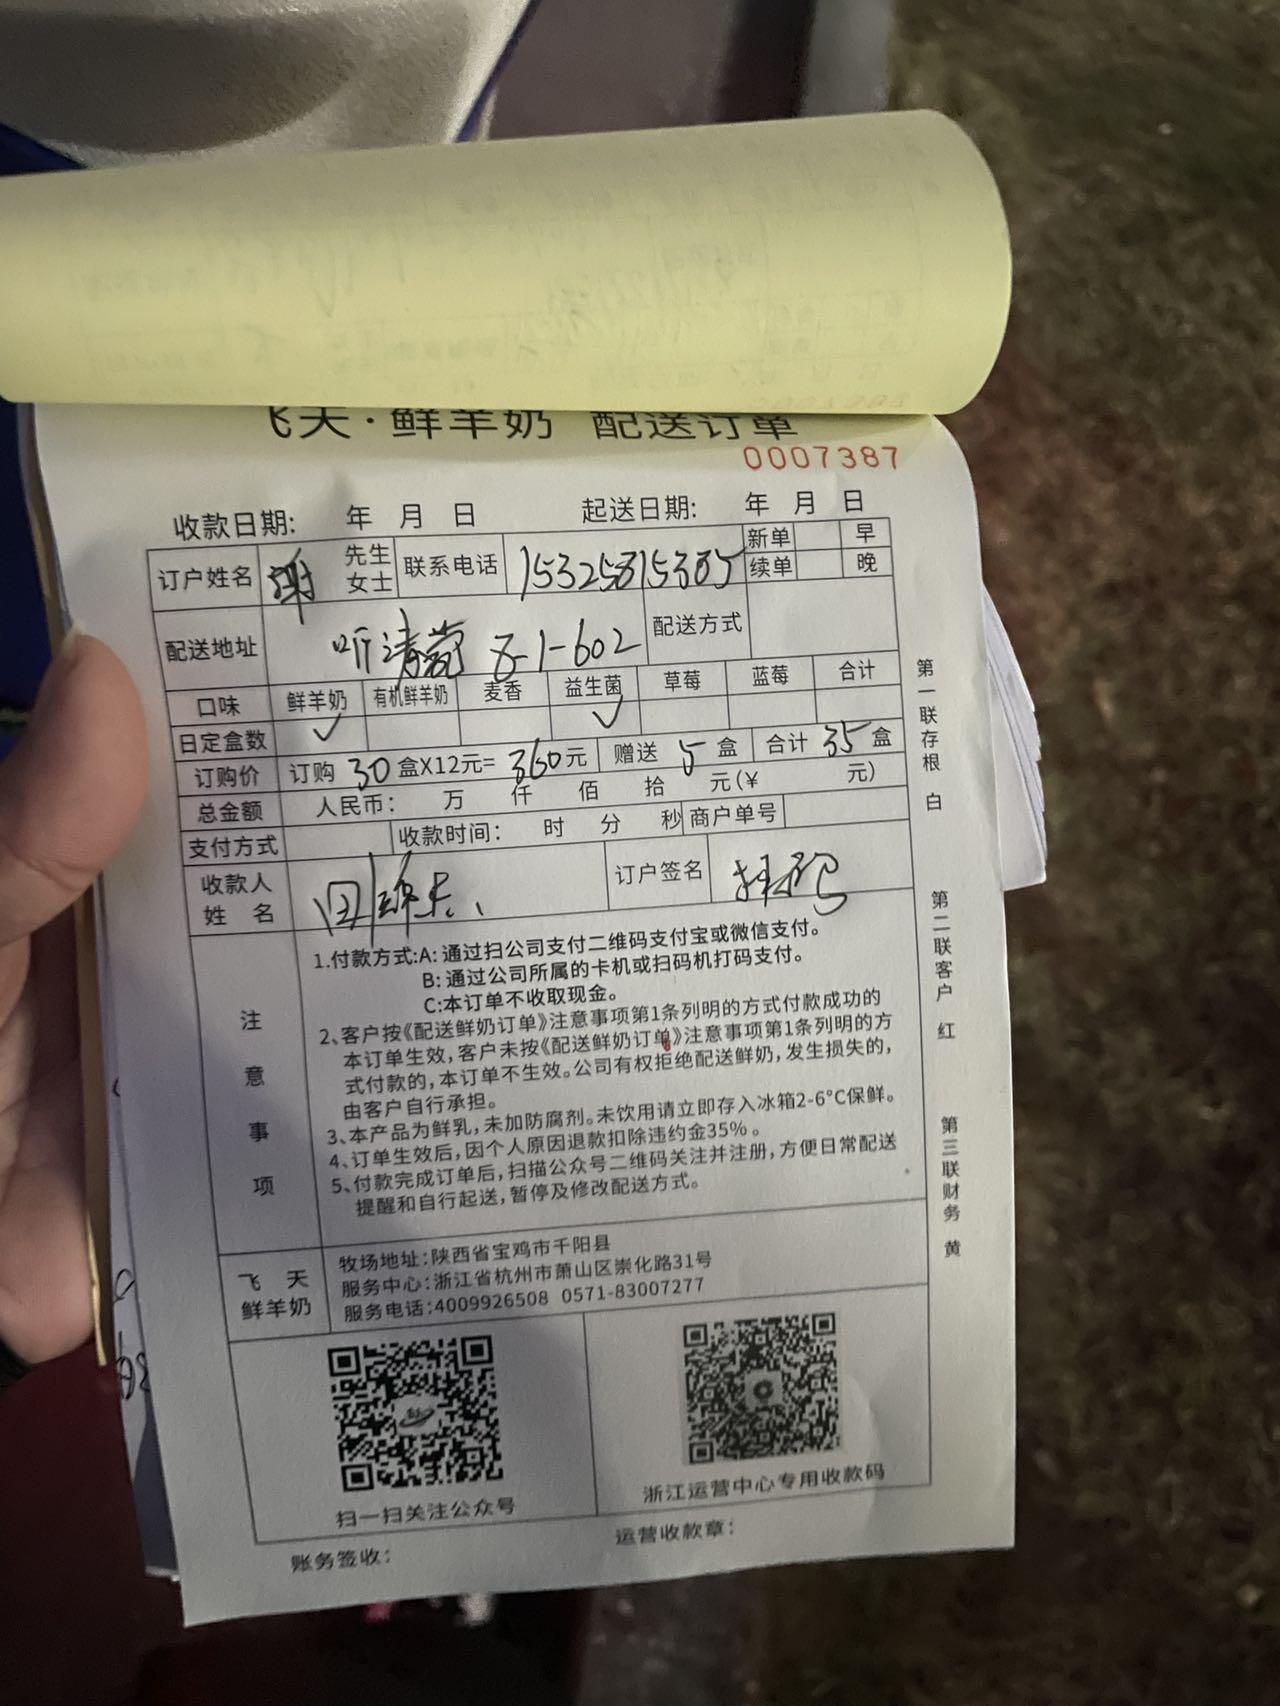 飞天·鲜羊奶 配送订单
0007387
收款日期: 年 月 日 起送日期: 年 月 日
订户姓名 谢 先生 女士 联系电话 15325815385 新单 早
续单 晚
配送地址 听涛苑 8-1-602 配送方式
口味 鲜羊奶 有机鲜羊奶 麦香 益生菌 草莓 蓝莓 合计
日定盒数 ✓ ✓
订购价 订购 30 盒X12元= 360元 赠送 5 盒 合计 35 盒
总金额 人民币: 万 仟 佰 拾 元(¥ 元)
支付方式 收款时间: 时 分 秒 商户单号
收款人 姓 名 订户签名
注意事项
1.付款方式:A: 通过扫公司支付二维码支付宝或微信支付。
B: 通过公司所属的卡机或扫码机打码支付。
C:本订单不收取现金。
2、客户按《配送鲜奶订单》注意事项第1条列明的方式付款成功的
本订单生效,客户未按《配送鲜奶订单》注意事项第1条列明的方
式付款的,本订单不生效。公司有权拒绝配送鲜奶,发生损失的,
由客户自行承担。
3、本产品为鲜乳,未加防腐剂。未饮用请立即存入冰箱2-6°C保鲜。
4、订单生效后,因个人原因退款扣除违约金35%。
5、付款完成订单后,扫描公众号二维码关注并注册,方便日常配送
提醒和自行起送,暂停及修改配送方式。
飞 天
鲜羊奶
牧场地址:陕西省宝鸡市千阳县
服务中心:浙江省杭州市萧山区崇化路31号
服务电话:4009926508 0571-83007277
扫一扫关注公众号
浙江运营中心专用收款码
账务签收:
运营收款章:
第一联存根 白
第二联客户 红
第三联财务 黄